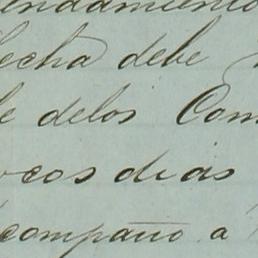 endamiento
fecha debe
de delos Com
ocos dias
compaño a